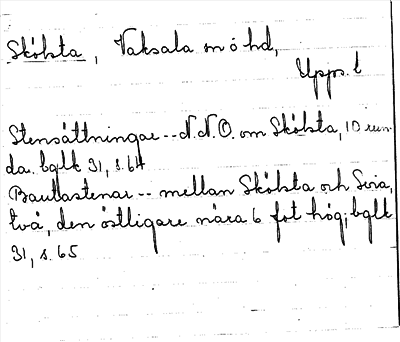 Skölsta, Vaksala sn o hd,
Upps. l
Stensättningar -- N.N.O. om Skölsta, 10 run-
da. bglk 31, s. 64
Bautastenar -- mellan Skölsta och Svia,
två, den östligare nära 6 fot hög; bglk
31, s. 65